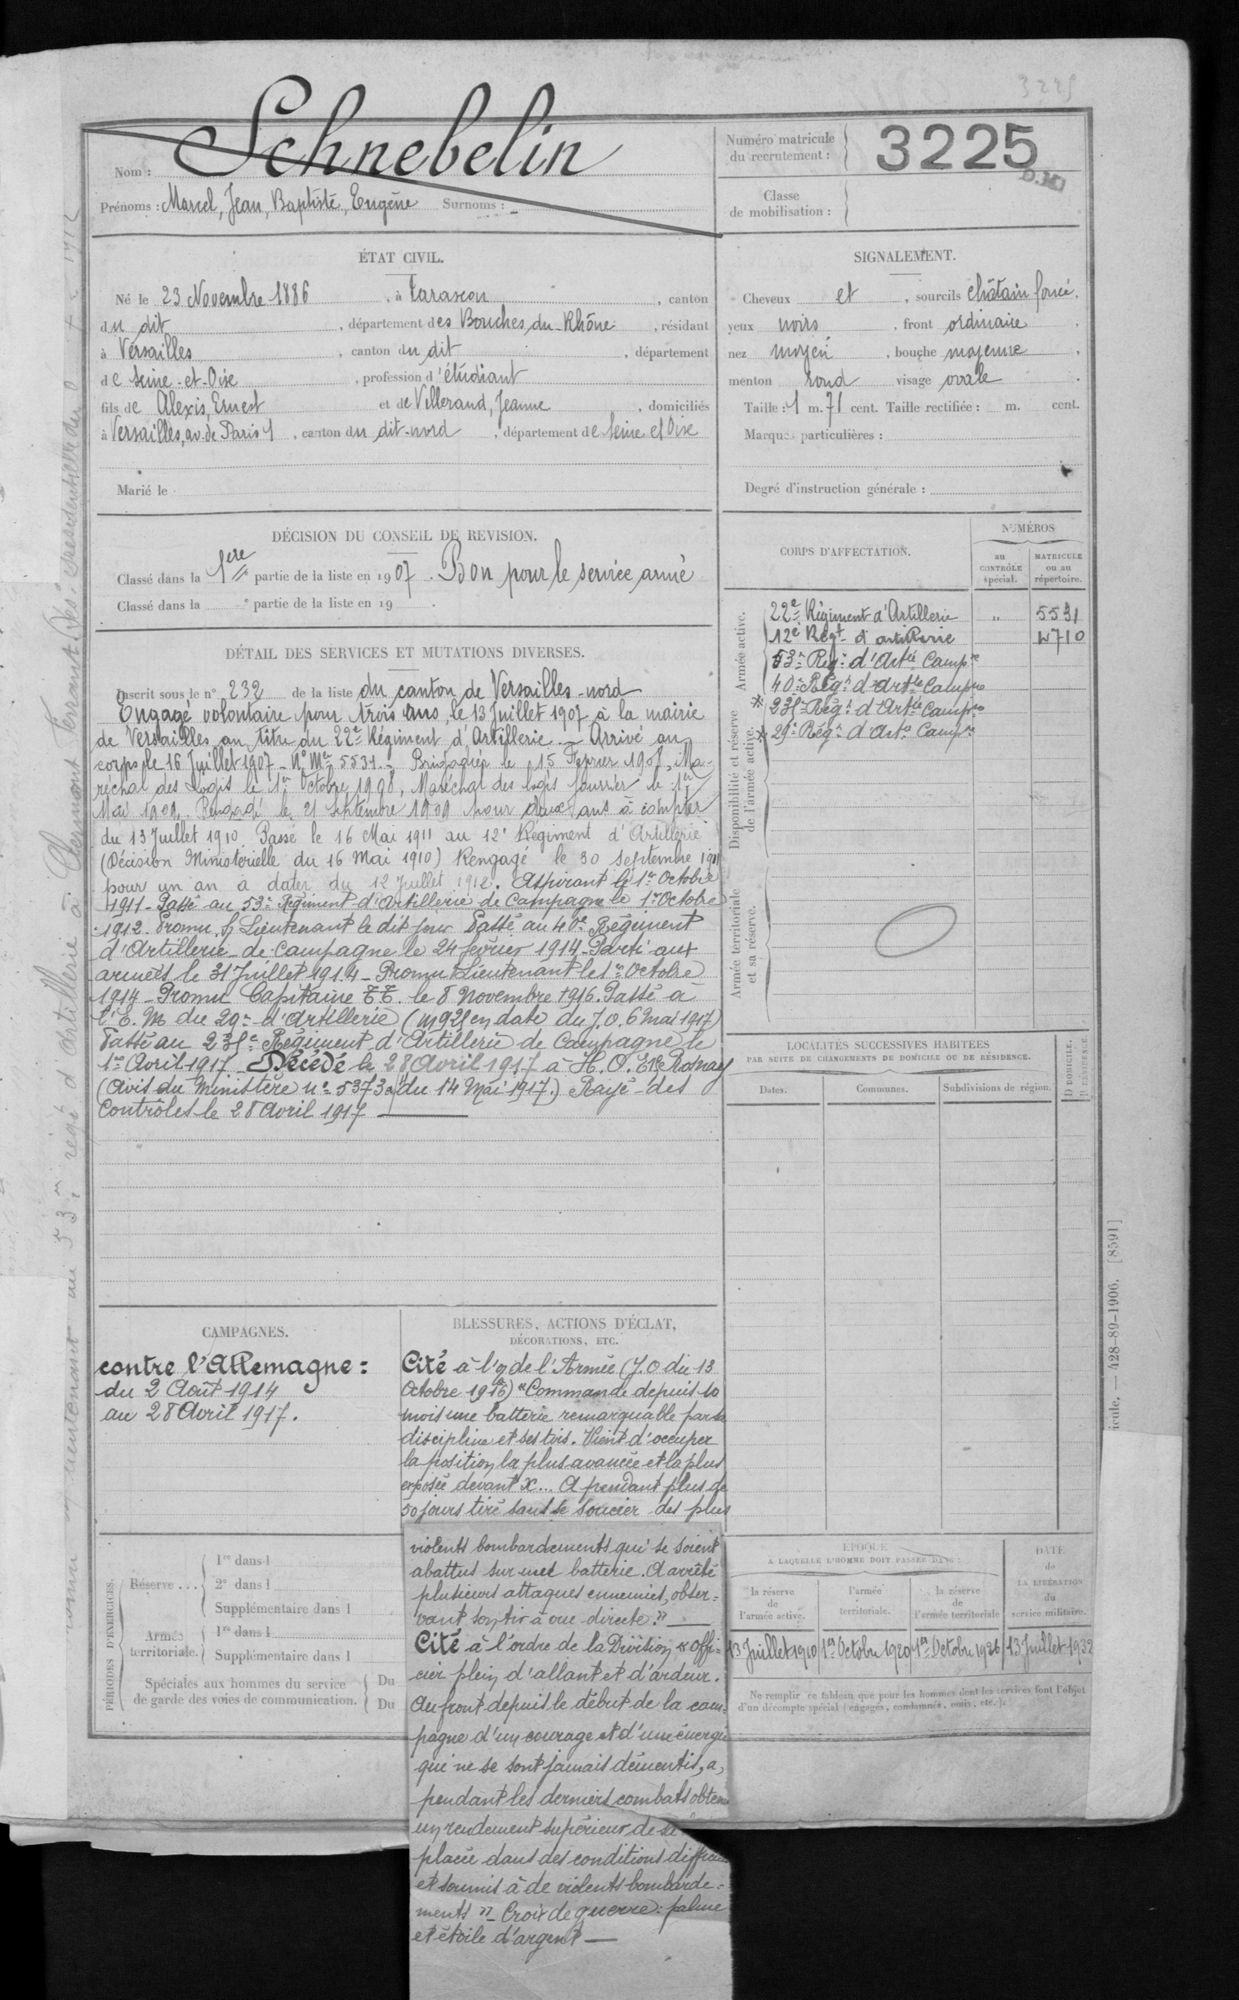 3225
Nom : Schnebelin
Prénoms : Marcel, Jean, Baptiste, Eugène Surnoms : -
Numéro matricule du recrutement : 3225
Classe de mobilisation :
ÉTAT CIVIL.
Né le 23 Novembre 1886, à Tarascon, canton
du dit, département des Bouches-du-Rhône, résidant
à Versailles, canton du dit, département
de Seine-et-Oise, profession d'étudiant
fils de Alexis, Ernest et de Villerand, Jeanne, domiciliés
à Versailles, av. de Paris 1, canton du dit-nord, département de Seine et Oise
Marié le
SIGNALEMENT.
Cheveux et, sourcils châtain foncé.
yeux noirs, front ordinaire,
nez moyen, bouche moyenne,
menton rond visage ovale.
Taille : 1 m. 71 cent. Taille rectifiée : m. cent.
Marques particulières :
Degré d'instruction générale :
DÉCISION DU CONSEIL DE REVISION.
Classé dans la 1ere partie de la liste en 1907. Bon pour le service armé
Classé dans la e partie de la liste en 19 .
DÉTAIL DES SERVICES ET MUTATIONS DIVERSES.
Inscrit sous le n° 232 de la liste du canton de Versailles-nord
Engagé volontaire pour trois ans, le 13 Juillet 1907 à la mairie
de Versailles au titre du 22e Régiment d'Artillerie. - Arrivé au
corps le 16 Juillet 1907 - N° Mle 5531 - Brigadier le 15 Février 1908, Ma-
réchal des logis le 1er Octobre 1908, Maréchal des logis fourrier le 1er
Mai 1909. Rengagé le 21 Septembre 1909 pour deux ans à compter
du 13 Juillet 1910. Passé le 16 Mai 1911 au 12e Régiment d'Artillerie
(Décision Ministérielle du 16 Mai 1910) Rengagé le 30 septembre 1911
pour un an à dater du 12 Juillet 1912. Aspirant le 1er Octobre
1911 - Passé au 53e Régiment d'Artillerie de Campagne le 1er Octobre
1912. Promu S/Lieutenant le dit jour Passé au 40e Régiment
d'Artillerie de Campagne le 24 février 1914 - Parti aux
armées le 31 Juillet 1914 - Promu Lieutenant le 1er Octobre
1914 - Promu Capitaine T.T. le 8 Novembre 1916. Passé à
l'E. M du 29e d'Artillerie ( en date du J.O. 6 mai 1917)
Passé au 235e Régiment d'Artillerie de Campagne le
1er Avril 1917. Décédé le 28 Avril 1917 à H.O.E. Rosnay
(Avis du Ministère n° 5373 du 14 Mai 1917.) Rayé des
Contrôles le 28 Avril 1917
CORPS D'AFFECTATION.
NUMÉROS
au CONTRÔLE spécial.
MATRICULE ou au répertoire.
Armée active.
22e Régiment d'Artillerie " 5531
12e Régt d'artillerie 4710
53e Rég. d'Artie Campne
40e Rég. d'Artie Campne
Disponibilité et réserve de l'armée active.
* 235e Rég. d'Artie Campne
* 29e Rég. d'Artie Campne
Armée territoriale et sa réserve.
LOCALITÉS SUCCESSIVES HABITÉES
PAR SUITE DE CHANGEMENTS DE DOMICILE OU DE RÉSIDENCE.
Dates. Communes. Subdivisions de région.
D DOMICILE. R RÉSIDENCE.
CAMPAGNES.
contre l'Allemagne :
du 2 Août 1914
au 28 Avril 1917.
BLESSURES, ACTIONS D'ÉCLAT,
DÉCORATIONS, ETC.
Cité à l'o/ de l'Armée (J.O du 13
Octobre 1916) "Commande depuis 10
mois une batterie remarquable par sa
discipline et ses tirs. Vient d'occuper
la position la plus avancée et la plus
exposée devant X... A pendant plus de
50 jours tiré sans se soucier des plus
violents bombardements qui se soient
abattus sur une batterie. A arrêté
plusieurs attaques ennemies, obser-
vant son tir à vue directe."
Cité à l'ordre de la Division "Offi-
cier plein d'allant et d'ardeur.
Au front depuis le début de la cam-
pagne d'un courage et d'une énergie
qui ne se sont jamais démentis, a,
pendant les derniers combats obtenu
un rendement supérieur de sa
placée dans des conditions
et soumis à de violents bombarde-
ments" - Croix de guerre : palme
et étoile d'argent
PÉRIODES D'EXERCICES.
Réserve ... 1re dans l
2e dans l
Supplémentaire dans l
Armée territoriale. 1re dans l
Supplémentaire dans l
Spéciales aux hommes du service de garde des voies de communication. Du
Du
ÉPOQUE
À LAQUELLE L'HOMME DOIT PASSER DANS :
la réserve de l'armée active. l'armée territoriale. la réserve de l'armée territoriale
DATE de LA LIBÉRATION du service militaire.
13 Juillet 1910 1er Octobre 1920 1er Octobre 1926 13 Juillet 1932
Ne remplir ce tableau que pour les hommes dont les services font l'objet
d'un décompte spécial (engagés, condamnés, omis, etc.).
icule. — 428-89-1906. [8591]